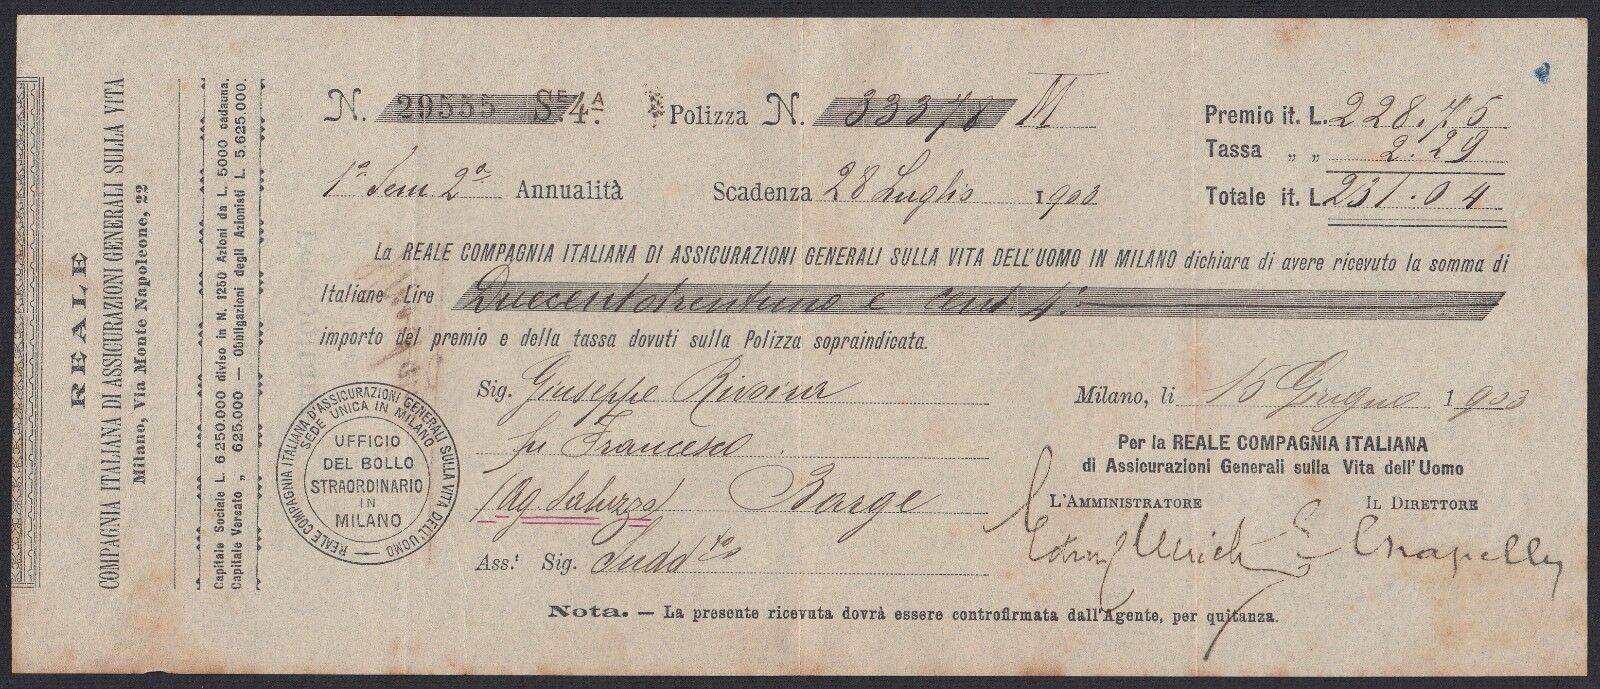 REALE
COMPAGNIA ITALIANA DI ASSICURAZIONI GENERALI SULLA VITA
Milano, Via Monte Napoleone, 22
Capitale Sociale L. 6.250.000 diviso in N. 1250 Azioni da L. 5000 cadauna.
Capitale Versato „ 625.000 — Obbligazioni degli Azionisti L. 5.625.000.
N. 29555 S.E 4.A Polizza N. 33378 M
Premio it. L. 228.75
Tassa „ „ 2.29
Totale it. L. 231.04
1° Sem 2a Annualità Scadenza 28 Luglio 1903
La REALE COMPAGNIA ITALIANA DI ASSICURAZIONI GENERALI SULLA VITA DELL'UOMO IN MILANO dichiara di avere ricevuto la somma di
Italiane Lire Duecentotrentuno e cent 4.
importo del premio e della tassa dovuti sulla Polizza sopraindicata.
Sig. Giuseppe
fu Francesco
(Ag. Saluzzo) Barge
Ass.t Sig. Sudd.to
REALE COMPAGNIA ITALIANA D'ASSICURAZIONI GENERALI SULLA VITA DELL'UOMO
SEDE UNICA IN MILANO
UFFICIO
DEL BOLLO
STRAORDINARIO
IN
MILANO
Milano, li 15 Giugno 1903
Per la REALE COMPAGNIA ITALIANA
di Assicurazioni Generali sulla Vita dell'Uomo
L'AMMINISTRATORE IL DIRETTORE
Ulrich
Nota. — La presente ricevuta dovrà essere controfirmata dall'Agente, per quitanza.